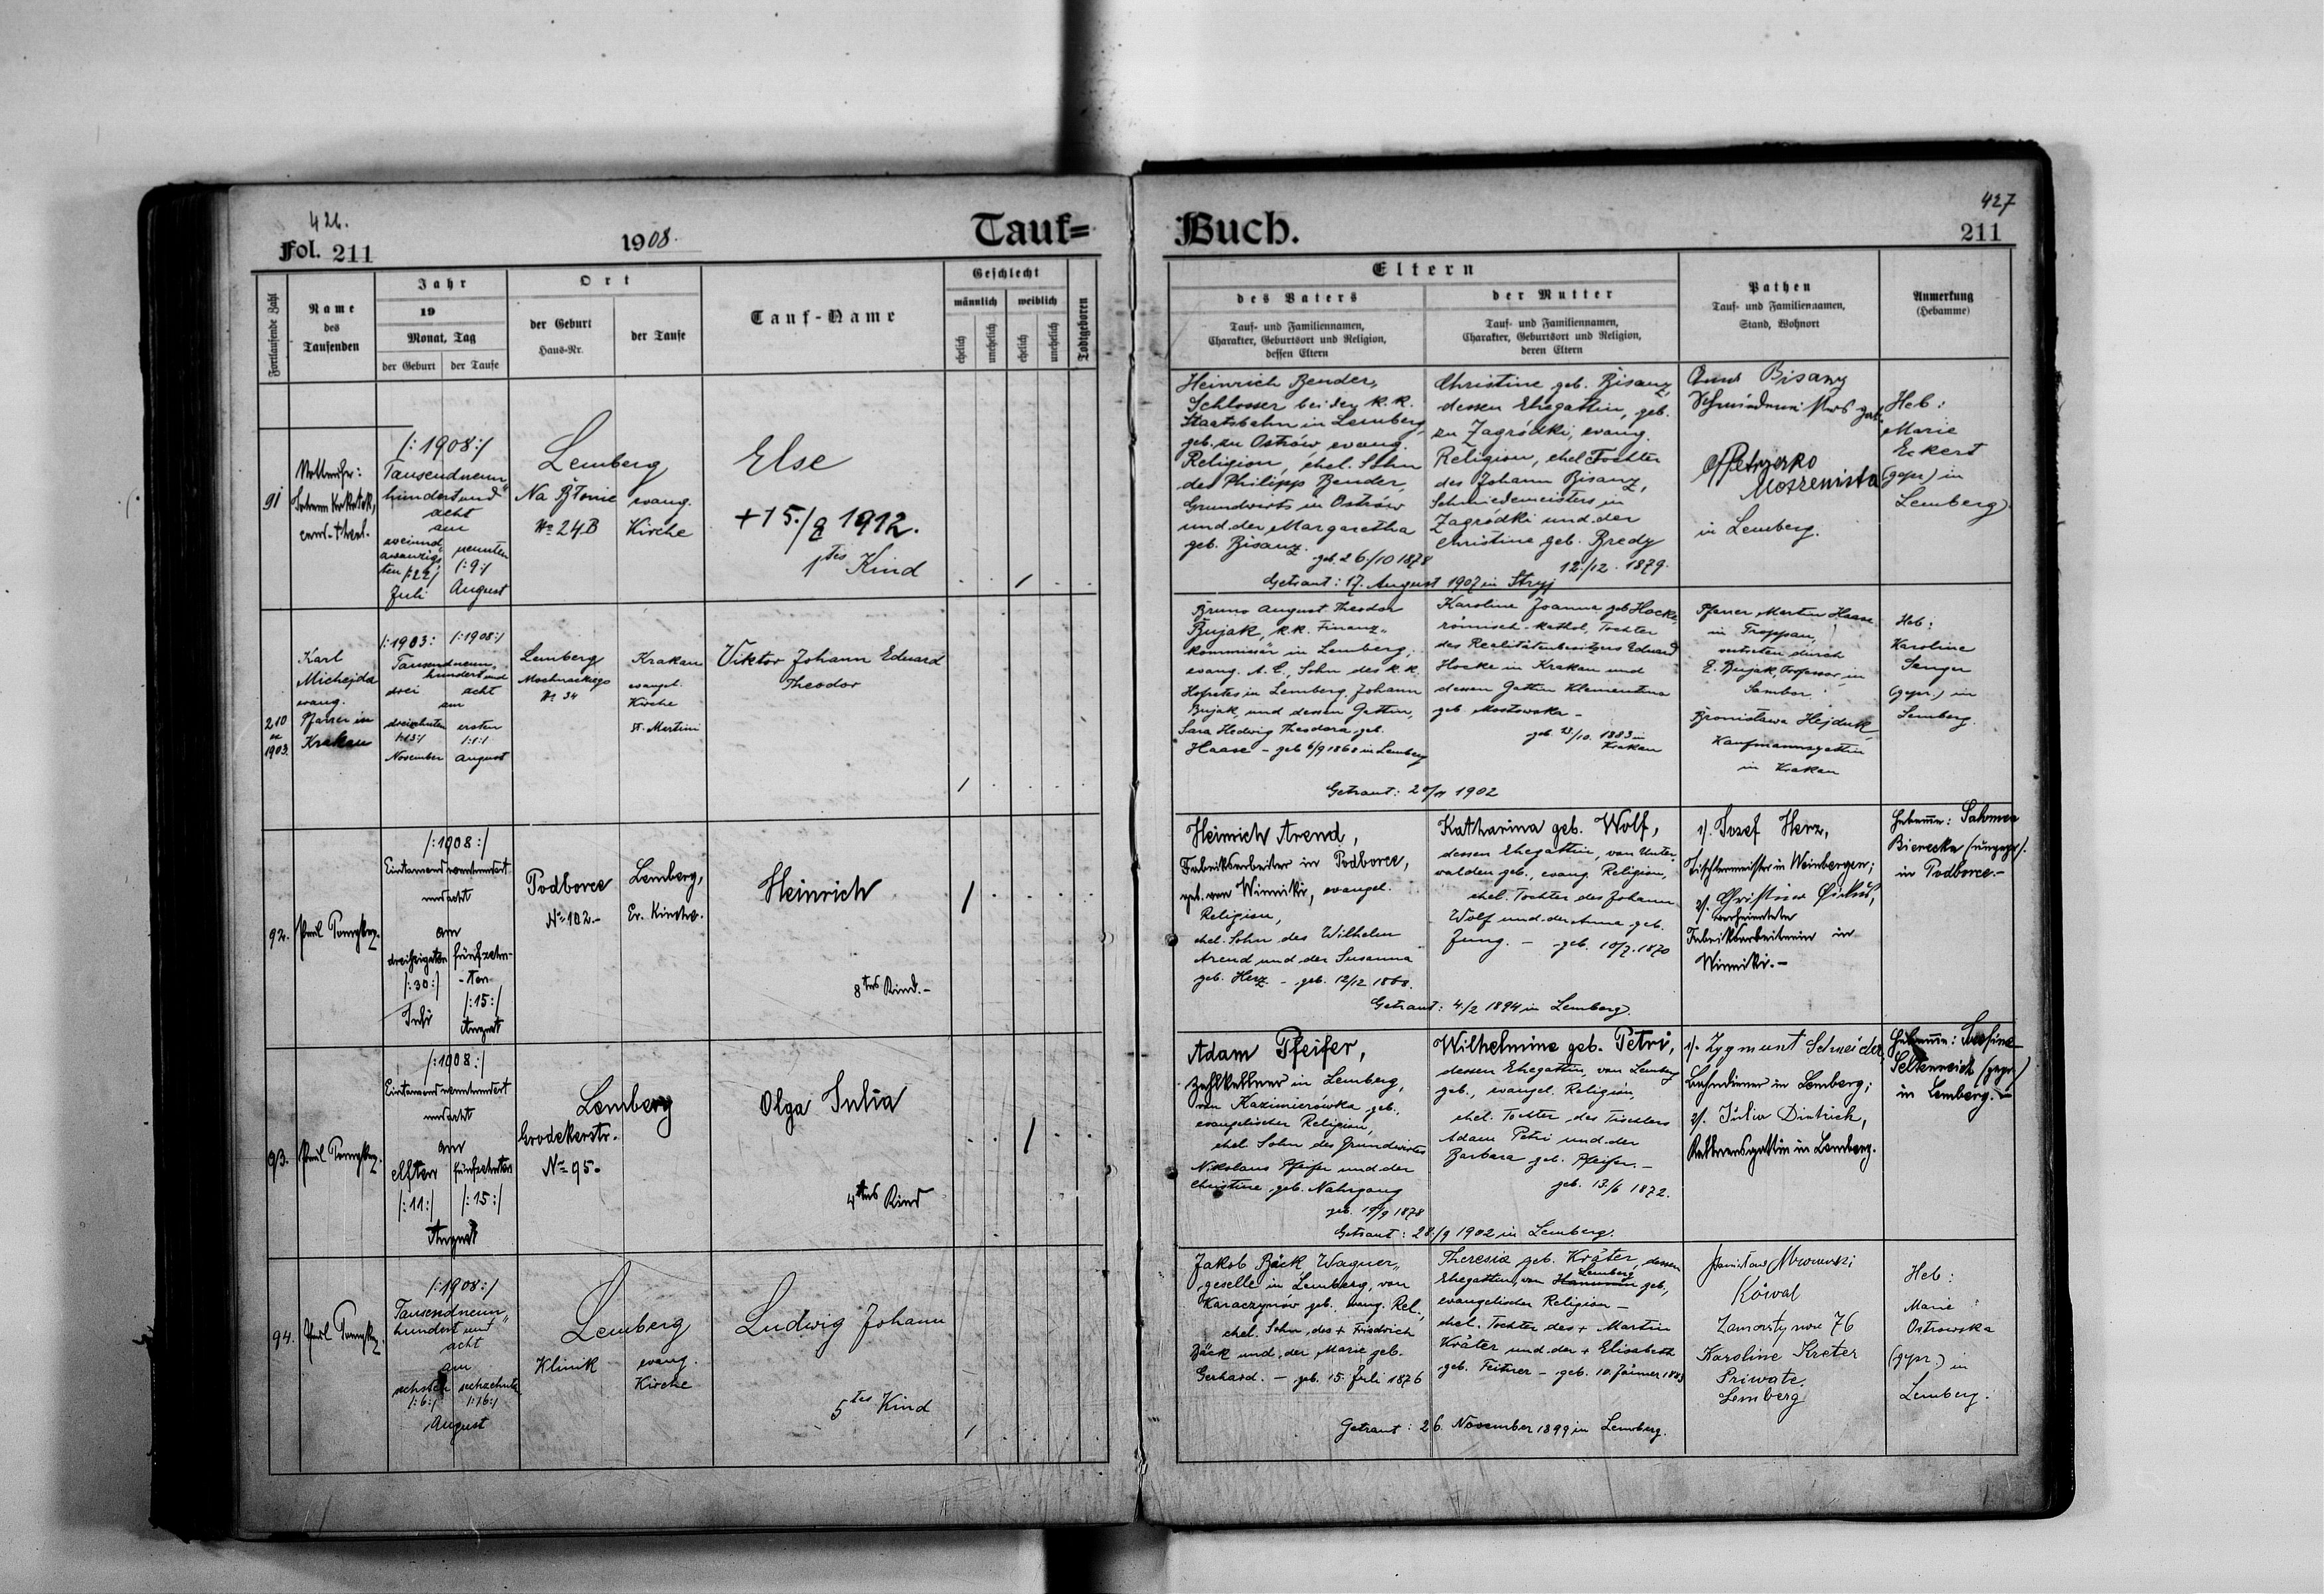 426.
Fol. 211
1908.
Tauf=
Fortlaufende Zahl
Name
des
Taufenden
Jahr
19
Monat, Tag
der Geburt
der Taufe
Ort
der Geburt
Haus-Nr.
der Taufe
Tauf-Name
Geschlecht
männlich
weiblich
ehelich
unehelich
ehelich
unehelich
Todtgeboren
91
cand. theol.
/:1908:/
Tausendneun
hundert und
acht
am
zweiund
zwanzigs
ten /:22/
Juli
neunten
/:9:/
August
Lemberg
Na Błonie
No 24B
evang.
Kirche
Else
+15./9 1912.
1tes Kind
210
ex
1903.
Karl
Michejda
evang.
Pfarrer in
Krakau
/:1903:
/:1908:/
Tausendneun,
hundert und
drei
acht
am
dreizehnten
/:13:/
November
ersten
/:1:/
August
Lemberg
Mochnackiego
No 34
Krakau
evangel.
Kirche
St. Martini
Viktor Johann Eduard
Theodor
92.
Paul
/:1908:/
Eintausendneunhundert
undacht
am
dreißigsten
/:30:/
Juli
fünfzehn-
-ten
/:15:/
August
Podborce
No 102.-
Lemberg,
Ev. Kirche.
Heinrich
8tes Kind.-
93.
Paul
/:1908:/
Eintausendneunhundert
undacht
am
elften
/:11:/
fünfzehnten
/:15:/
August
Lemberg
Grodekerstr.
No 95.
Olga Julia
4tes Kind
94.
Paul
/:1908:/
Tausendneun"
hundert und
acht
am
sechsten
/:6:/
sechzehnten
/:16:/
August
Lemberg
Klinik
evang.
Kirche
Ludwig Johann
5tes Kind
427
Buch.
211
Eltern
des Vaters
Tauf- und Familiennamen,
Charakter, Geburtsort und Religion,
dessen Eltern
der Mutter
Tauf- und Familiennamen,
Charakter, Geburtsort und Religion,
deren Eltern
Pathen
Tauf- und Familiennamen,
Stand, Wohnort
Anmerkung
(Hebamme)
Heinrich Bender,
Schlosser bei der k.k.
Staatsbahn in Lemberg,
geb. zu Ostrów, evang.
Religion, ehel. Sohn
des Philipp Bender,
Grundwirts in Ostrów
und der Margaretha
geb. Bisanz.
geb. 26/10 1878
Christine geb. Bisanz,
dessen Ehegattin, geb.
zu Zagródki, evang.
Religion, ehel Tochter
des Johann Bisanz,
Schmiedemeisters in
Zagródki und der
Christine geb. Bredy
12./12. 1879.
Getraut: 17. August 1907 in Stryj
Bisanz
in Lemberg.
Heb:
Marie
Eckert
(gepr) in
Lemberg).
Bruno August Theodor
Bujak, k.k. Finanz"
kommissär in Lemberg,
evang. A. C., Sohn des k.k.
Hofrates in Lemberg, Johann
Bujak, und dessen Gattin,
Sara Hedwig Theodora geb.
Haase - geb 6/9 1868 in Lemberg
Karoline Joanna geb Hocke,
römisch-kathol, Tochter
des Realitätenbesitzers Eduard
Hocke in Krakau und
dessen Gattin Klementina
geb. Mostowska -
geb 23/10. 1883 in
Krakau
Getraut: 20/11 1902
Pfarrer Martin Haase
in Troppau,
vertreten durch
E. Bujak, Professor in
Sambor.
Bronisława Hejduk,
Kaufmannsgattin
in Krakau
Heb:
Karoline
Senger
(gepr.) in
Lemberg.
Heinrich Arend,
Fabriksarbeiter in Podborce,
geb. von Winniki, evangel.
Religion,
ehel. Sohn des Wilhelm
Arend und der Susanna
geb. Herz - geb. 12/12 1868.
Katharina geb. Wolf,
dessen Ehegattin, von Unter
walden geb., evang. Religion,
ehel. Tochter des Johann
Wolf und der Anna geb.
Jung. - geb. 10/7. 1870
Getraut: 4./2 1894 in Lemberg).
1/. Josef Herz,
Tischlermeister in Weinbergen;
2/. Christina
verheiratete
Fabriksarbeiterin in
Winniki.-
Hebamme: Salomea
Bienecka (ungepr).
in Podborce.-
Adam Pfeifer,
Zahlkellner in Lemberg,
von Kazimierówka geb.,
evangelischer Religion,
ehel. Sohn des Grundwirtes
Nikolaus Pfeifer und der
Christine geb. Nahrgang
geb. 19/9 1878
Wilhelmine geb. Petri,
dessen Ehegattin, von Lemberg
geb., evangel. Religion,
ehel. Tochter des Tischlers
Adam Petri und der
Barbara geb. Pfeifer. -
geb. 13./6 1872.
Getraut: 28./9 1902 in Lemberg.
1/. Zygmunt Schneider,
Bahndiener in Lemberg;
2/. Julia Dietrich,
Kellnersgattin in Lemberg.
Hebamme:
Seltenreich (gepr)
in Lemberg.-
Jakob Bäck Wagner"
geselle in Lemberg, von
Karaczynów geb. evang. Rel.,
ehel. Sohn des + Friedrich
Bäck und der Marie geb.
Gerhard. - geb. 15. Juli 1876
Theresia geb. Kräter, dessen
Ehegattin, von Lemberg geb.,
evangelischer Religion -
ehel. Tochter des + Martin
Kräter und der + Elisabeth
geb. Feitner - geb. 10. Jänner 1883
Getraut: 26. November 1899 in Lemberg.
Kowal
76
Karoline Kreter
Private.
Lemberg
Heb:
Marie
Ostrowska
(gepr.) in
Lemberg.